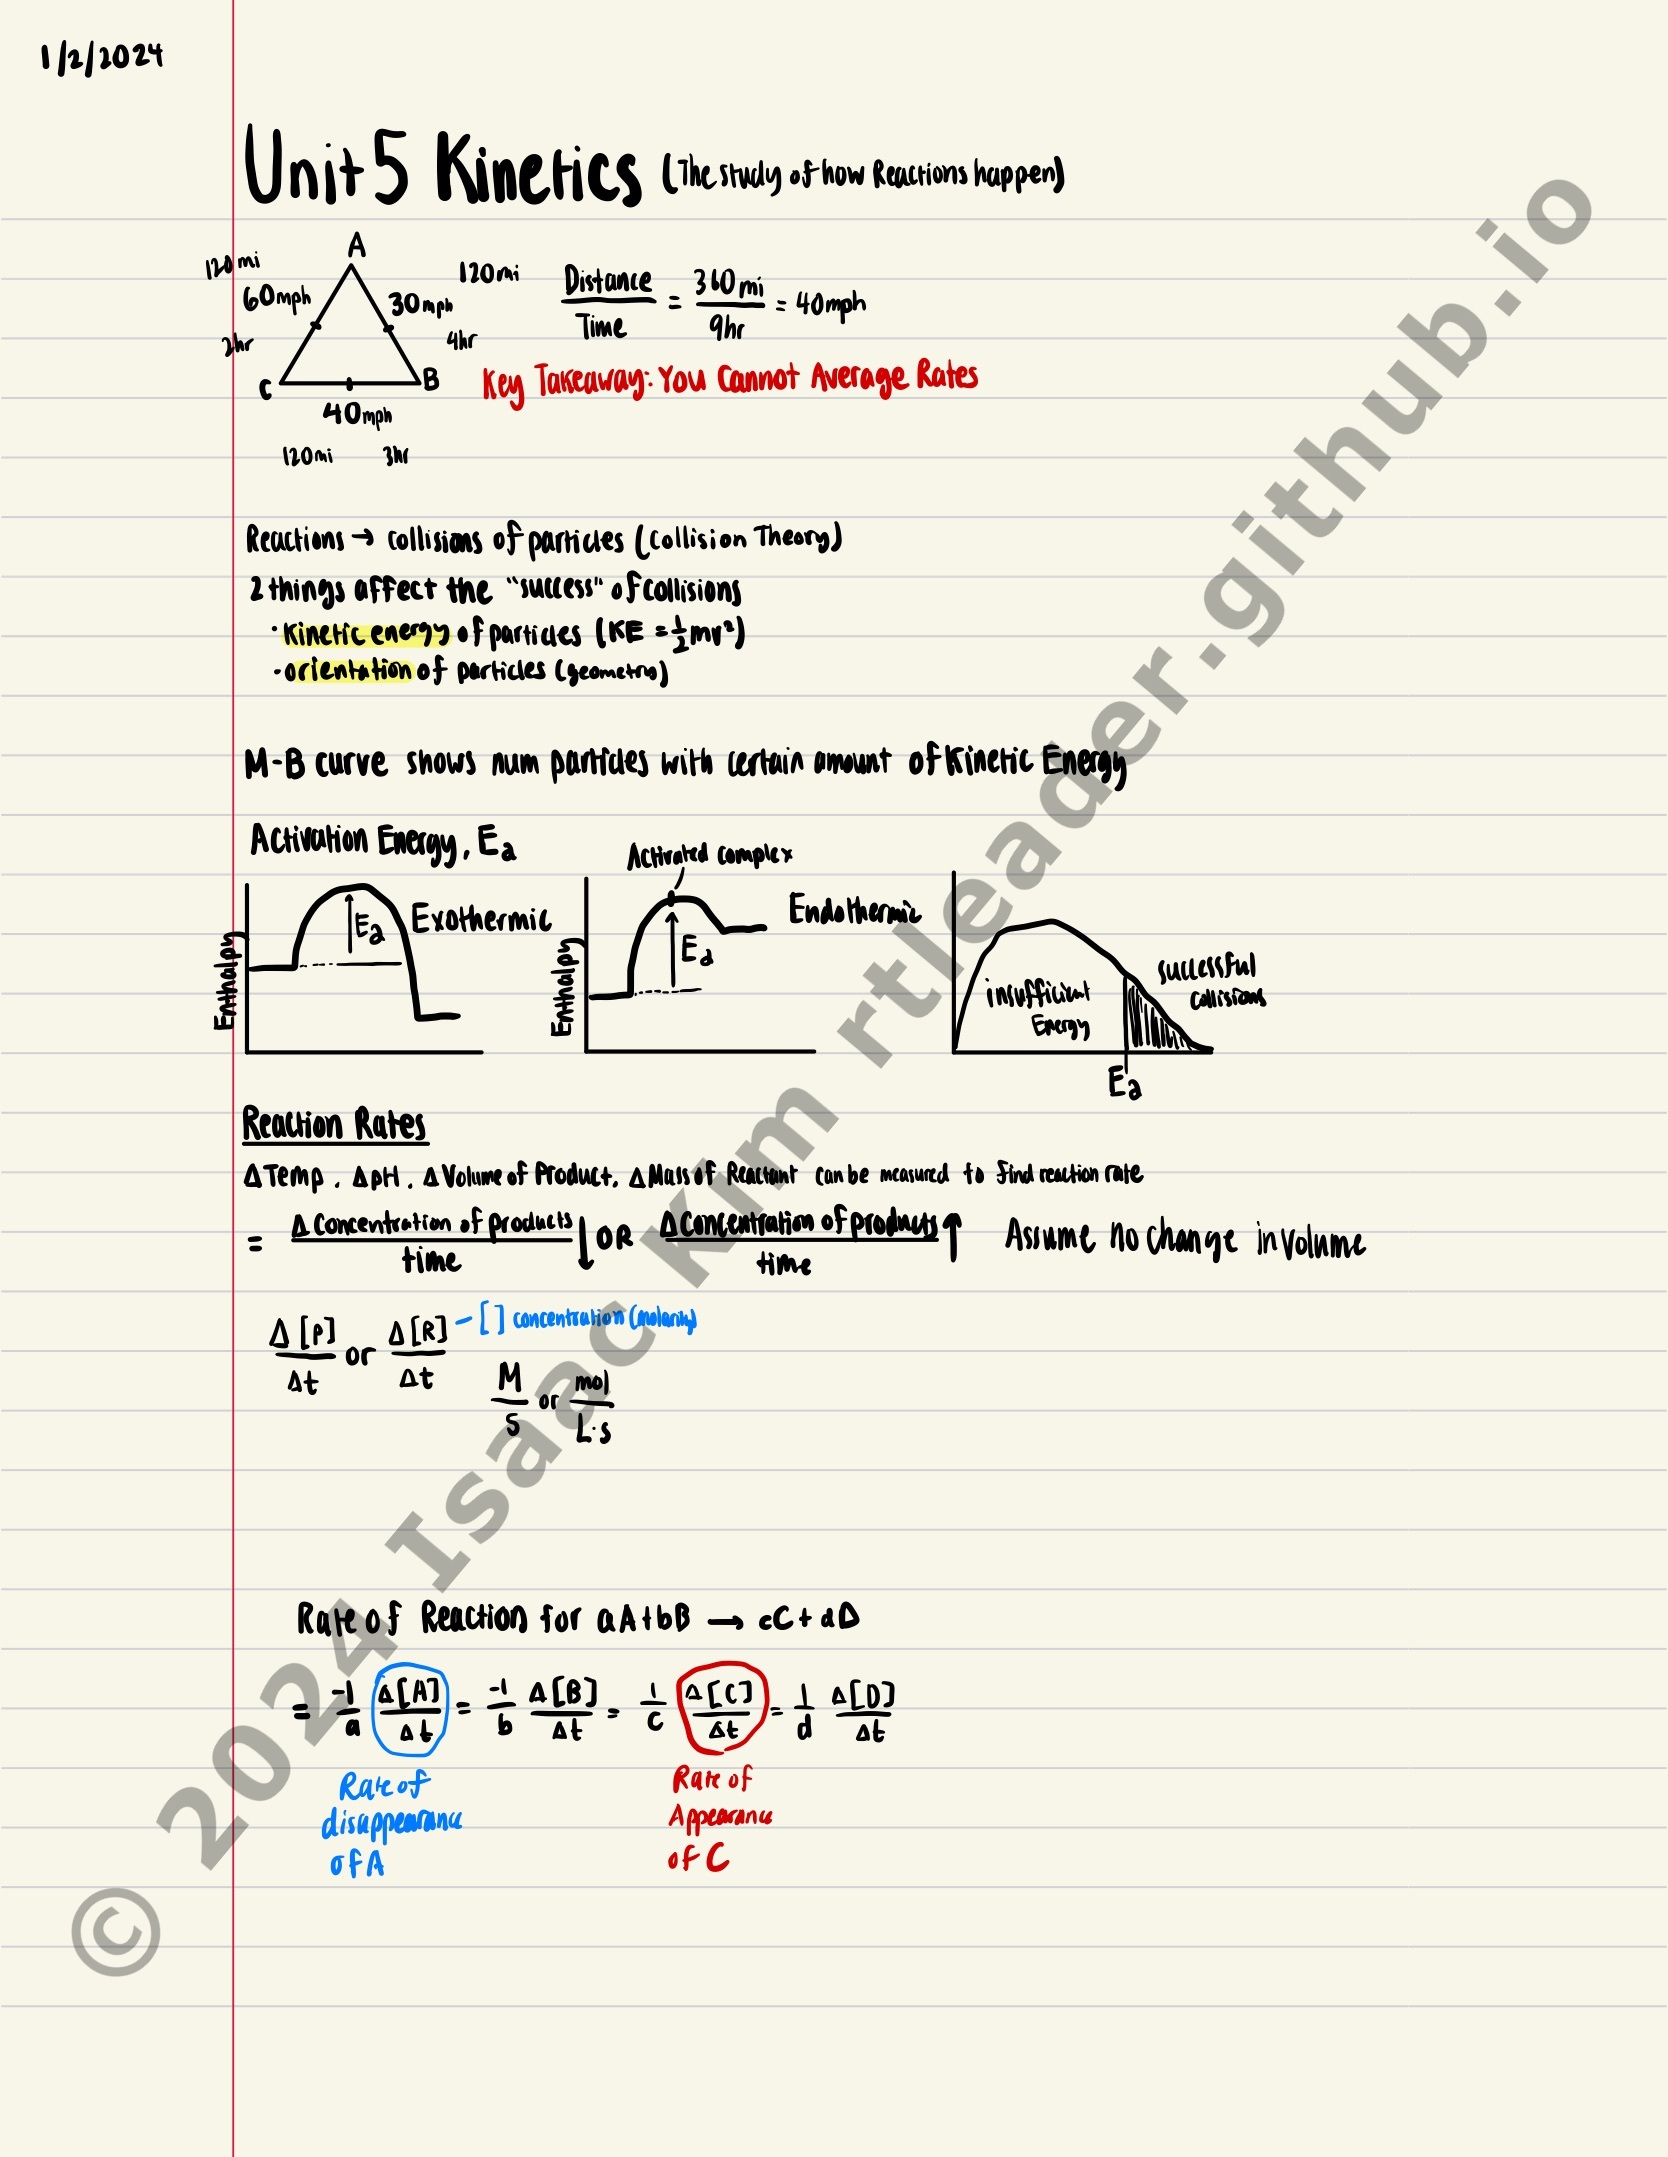 1/2/2024
Unit 5 Kinetics (The study of how Reactions happen)
A
120mi
60mph
2hr
30mph
120mi
4hr
C
B
40mph
120mi 3hr
Distance / Time = 360mi / 9hr = 40mph
Key Takeaway: You Cannot Average Rates
Reactions → collisions of particles (Collision Theory)
2 things affect the "success" of collisions
· kinetic energy of particles (KE = 1/2 mv²)
· orientation of particles (geometry)
M-B curve shows num particles with certain amount of Kinetic Energy
Activation Energy, Ea
Enthalpy
Ea
Exothermic
Activated complex
Enthalpy
Ea
Endothermic
insufficient
Energy
successful
collisions
Ea
Reaction Rates
Δ Temp, Δ pH, Δ Volume of Product, Δ Mass of Reactant can be measured to find reaction rate
= Δ Concentration of products / time ↓ OR Δ Concentration of products / time ↑ Assume no change in volume
Δ[P] / Δt or Δ[R] / Δt - [] concentration (molarity)
M / s or mol / L·s
Rate of Reaction for aA + bB → cC + dD
= -1/a Δ[A]/Δt = -1/b Δ[B]/Δt = 1/c Δ[C]/Δt = 1/d Δ[D]/Δt
Rate of
disappearance
of A
Rate of
Appearance
of C
© 2024 Isaac Kim rtleader.github.io